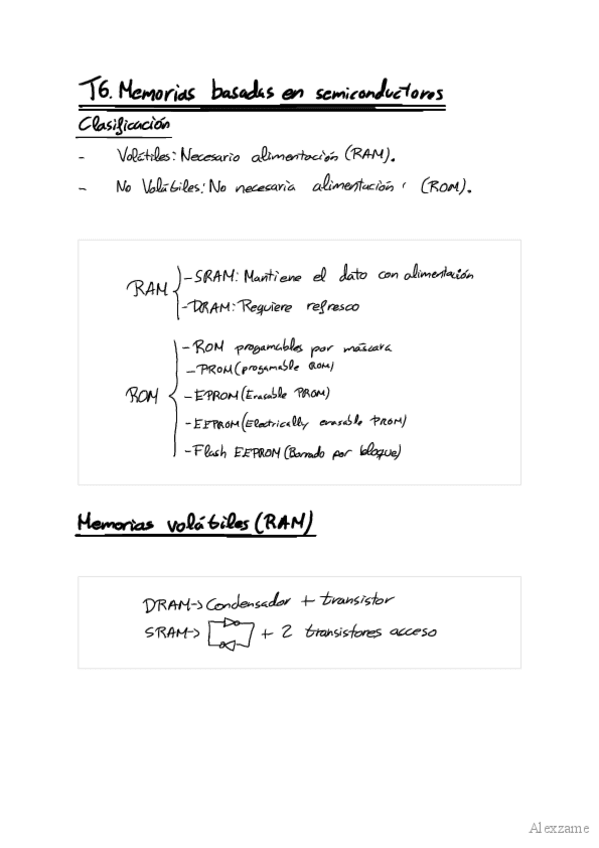 T6. Memorias basadas en semiconductores
Clasificación
- Volátiles: Necesario alimentación (RAM).
- No Volátiles: No necesaria alimentación (ROM).
RAM
- SRAM: Mantiene el dato con alimentación
- DRAM: Requiere refresco
ROM
- ROM progamables por máscara
- PROM (progamable ROM)
- EPROM (Erasable PROM)
- EEPROM (Electrically erasable PROM)
- Flash EEPROM (Borrado por bloque)
Memorias volátiles (RAM)
DRAM -> Condensador + transistor
SRAM -> + 2 transistores acceso
Alexzame